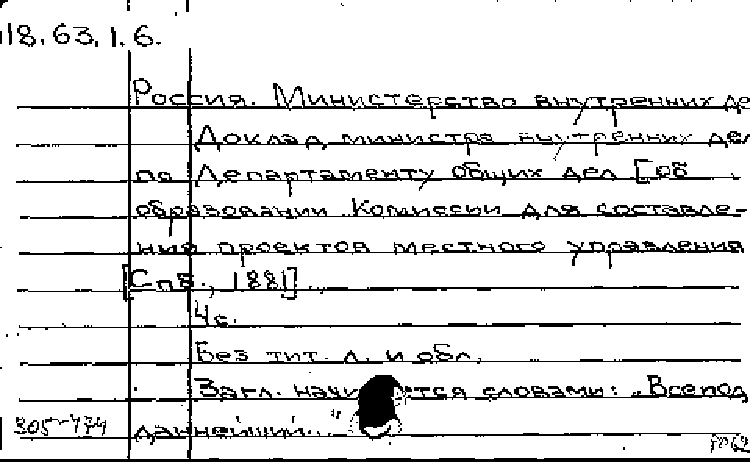 18.63.1.6.
Россия. Министерство внутренних де
Доклад министра внутренних дел
по Департаменту общих дел [об
образовании Комиссии для составле-
ния проектов местного управления
[Спб., 1881].
4с.
Без тит. л. и обл.
Загл. начинается словами: „Всепод
даннейший..."
305-434